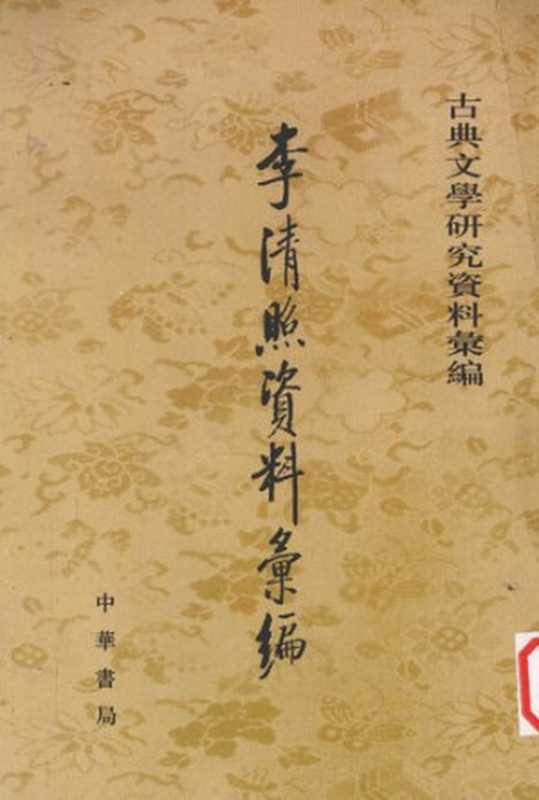 古典文學硏究資料彙編
李清照資料彙編
中華書局